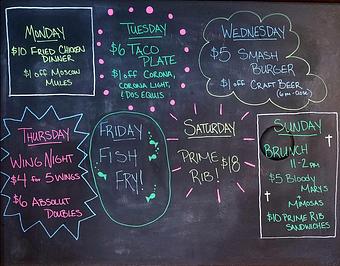 MONDAY
$10 FRIED CHICKEN
DINNER
$1 off MOSCOW
MULES
TUESDAY
$6 TACO
PLATE
$1 off CORONA,
CORONA LIGHT,
& DOS EQUIS
WEDNESDAY
$5 SMASH
BURGER
$1 off CRAFT BEER
(6pm-CLOSE)
THURSDAY
WING NIGHT
$4 for 5 WINGS
$6 ABSOLUT
DOUBLES
FRIDAY
FISH
FRY!
SATURDAY
PRIME $18
RIB!
SUNDAY
BRUNCH
11-2PM
$5 BLOODY
MARYS
+
MIMOSAS
$10 PRIME RIB
SANDWICHES